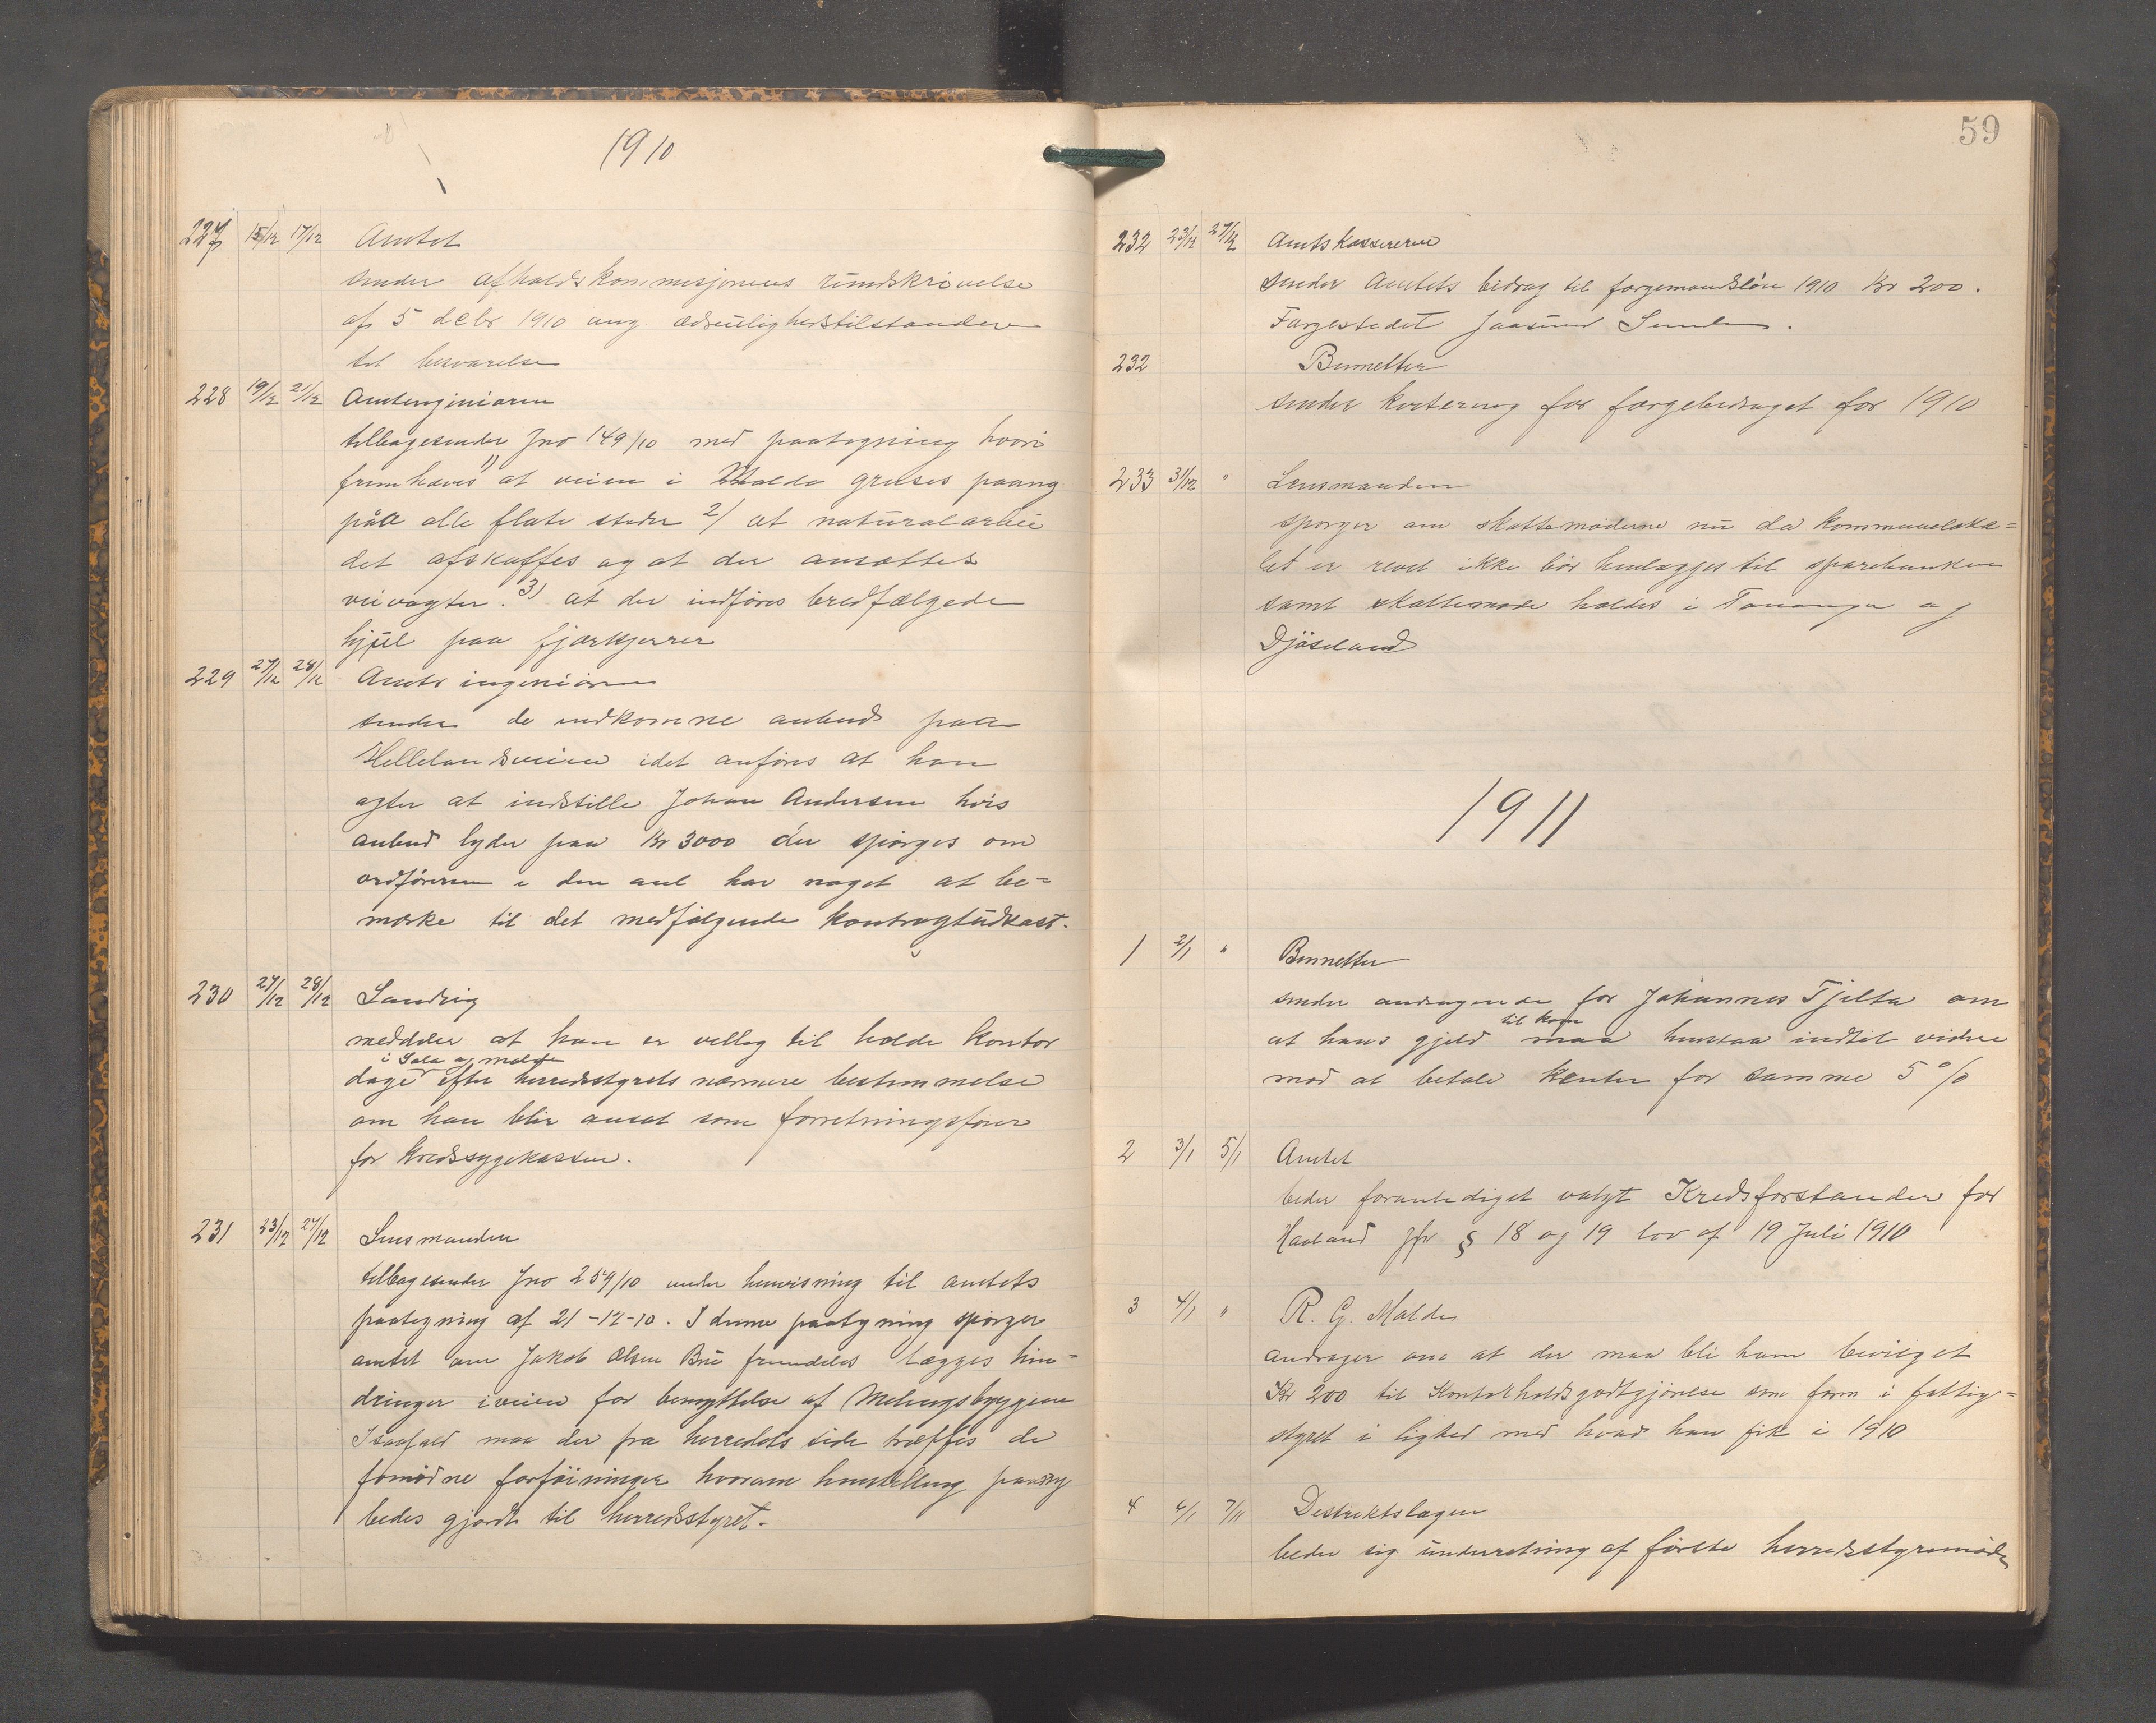 1910
227 15/12 17/12 Amtet
sender afholdskommisjonens rundskrivelse
af 5 debr 1910 ang ædruelighedstilstanden
til besvarelse
228 19/12 21/12 Amtenginiøren
tilbagesender Jno 149/10 med paategning hvori
fremhæves 1) at veien i Malde gruses paany
på alle flate steder 2) at naturalarbei
det afskaffes og at der ansættes
veivogter. 3) at der indføres bredfælgede
hjul paa fjærkjerrer
229 27/12 28/12 Amtsingeniøren
sender de indkomne anbud paa
Hellelandsveien idet anføres at han
agter at indstille Johan Andersen hvis
anbud lyder paa Kr 3000 der spørges om
ordføreren i den anl har noget at be=
mærke til det medfølgende kontragtudkast.
230 27/12 28/12
meddeler at han er villig til holde kontor
i Sola og malde
dage efter herredsstyrets nærmere bestemmelse
om han blir ansat som forretningsfører
for Kredssygekassen.
231 23/12 27/12 Lensmanden
tilbagesender Jno 259/10 under henvisning til amtets
paategning af 21-12-10. I denne paategning spørger
amtet om Jakob Olsen Bru fremdeles lægges hin=
dringer iveien for benyttelse af Melingsbryggene
Isaafald maa der fra herredets side træffes de
fornødne forføininger hvorom henstilling paany
bedes gjordt til herredsstyret.
59
232 23/12 27/12 Amtskassereren
sender Amtets bidrag til færgemandsløn 1910 Kr 200.
Færgestedet Jaasund Sunde.
232 Bemelte
sender kvitering for færgebidraget for 1910
233 31/12 " Lensmanden
spørger om skattemøderne nu da kommuneloka=
let er revet ikke bør henlægges til sparebanken
samt skattemøde holdes i Tananger og
Djøseland
1911
1 2/1 " Bemelte
sender andragende for Johannes Tjelta om
til kom
at hans gjeld maa henstaa indtil videre
mod at betale Renter for samme 5%
2 3/1 5/1 Amtet
beder foranlediget valgt Kredsforstander for
Haaland Jfr § 18 og 19 lov af 19 Juli 1910
3 4/1 " R. G. Malde
andrager om at der maa bli ham bevilget
Kr 200 til Kontorholdsgodtgjørelse som form i fattig=
styret i lighed med hvad han fik i 1910
4 6/1 7/11 Destriktslægen
beder sig underetning af første herredsstyremøde